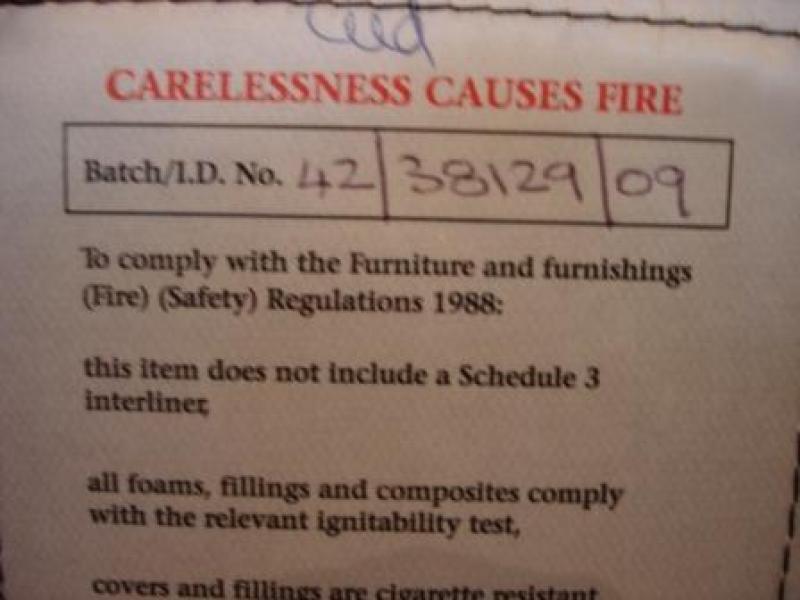 CARELESSNESS CAUSES FIRE
Batch/I.D. No. 42 38129 09
To comply with the Furniture and furnishings
(Fire) (Safety) Regulations 1988:
this item does not include a Schedule 3
interliner,
all foams, fillings and composites comply
with the relevant ignitability test,
covers and fillings are cigarette resistant